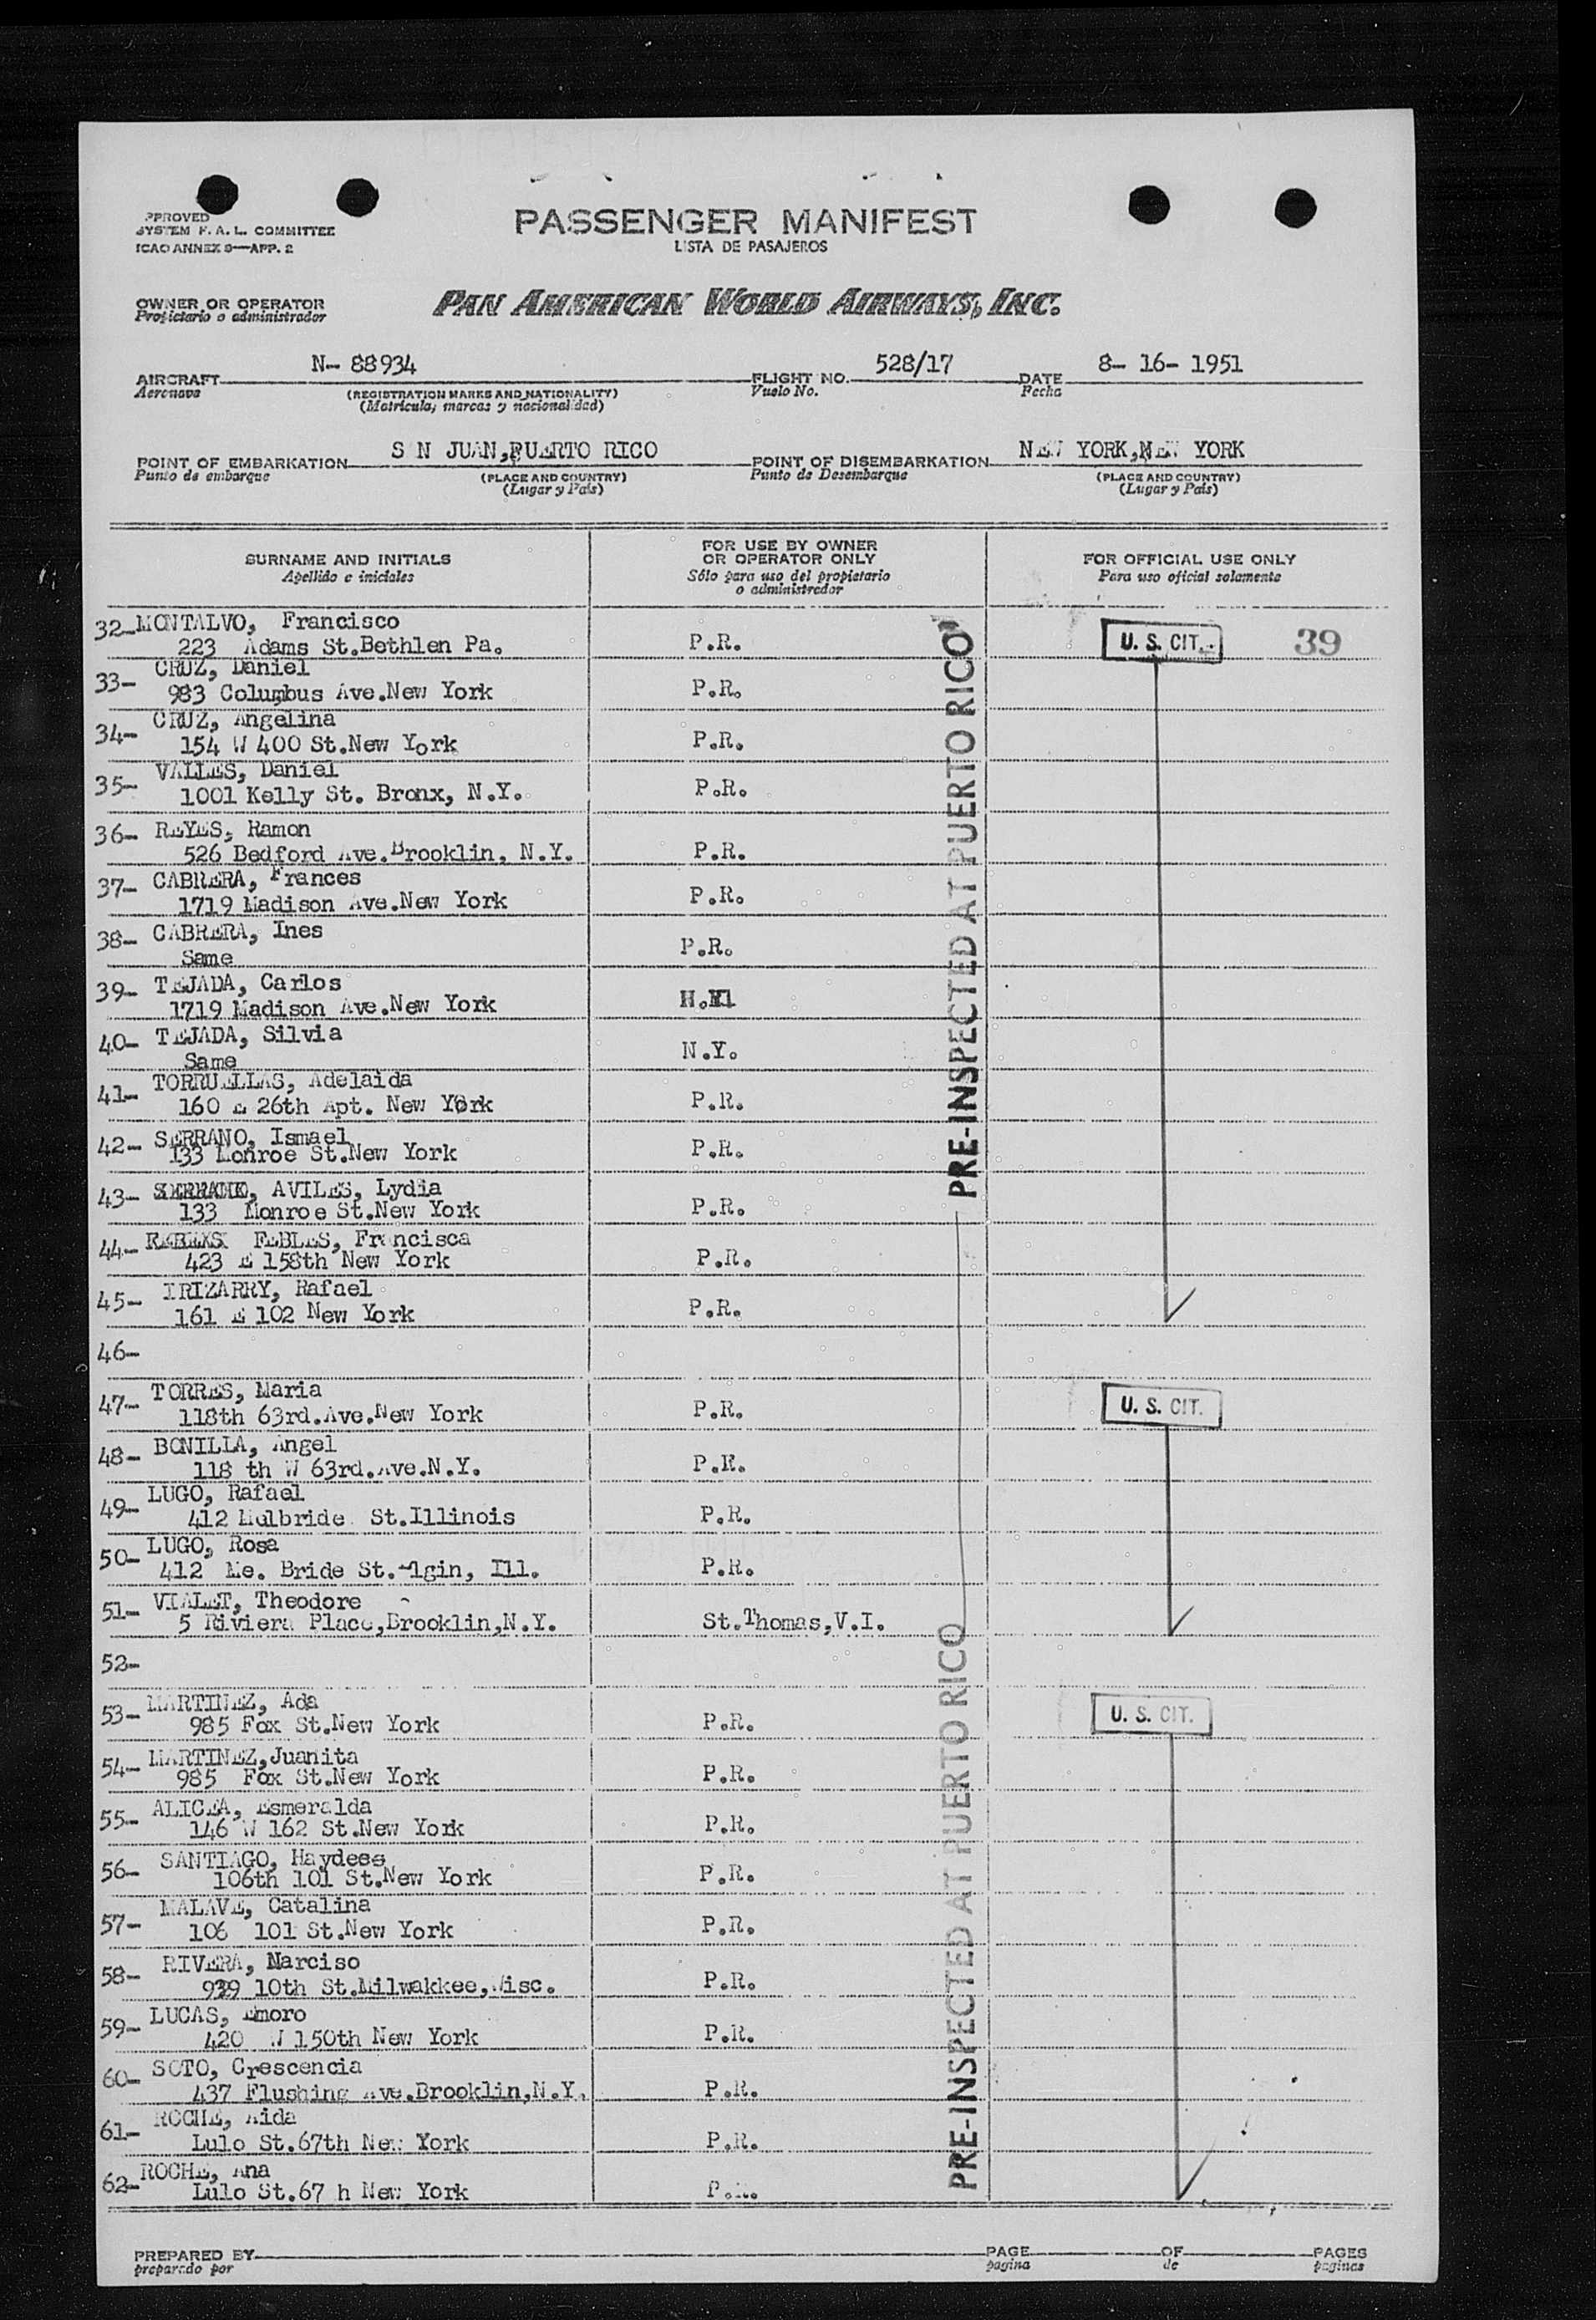 PPROVED
SYSTEM F. A. L. COMMITTEE
ICAO ANNEX 9—APP. 2
PASSENGER MANIFEST
LISTA DE PASAJEROS
OWNER OR OPERATOR
Propietario o administrador
PAN AMERICAN WORLD AIRWAYS, INC.
AIRCRAFT N- 88934 FLIGHT NO. 528/17 DATE 8- 16- 1951
Aeronave (REGISTRATION MARKS AND NATIONALITY) Vuelo No. Fecha
(Matricula, marcas y nacionalidad)
POINT OF EMBARKATION S N JUAN,PUERTO RICO POINT OF DISEMBARKATION NEW YORK,NEW YORK
Punto de embarque (PLACE AND COUNTRY) Punto de Desembarque (PLACE AND COUNTRY)
(Lugar y País) (Lugar y País)
SURNAME AND INITIALS FOR USE BY OWNER OR OPERATOR ONLY FOR OFFICIAL USE ONLY
Apellido e iniciales Sólo para uso del propietario o administrador Para uso oficial solamente
32-MONTALVO, Francisco
223 Adams St.Bethlen Pa. P.R. U. S. CIT. 39
33- CRUZ, Daniel
983 Columbus Ave.New York P.R.
34- CRUZ, Angelina
154 W 400 St.New York P.R.
35- VALLES, Daniel
1001 Kelly St. Bronx, N.Y. P.R.
36- REYES, Ramon
526 Bedford Ave.Brooklin, N.Y. P.R.
37- CABRERA, Frances
1719 Madison Ave.New York P.R.
38- CABRERA, Ines
Same P.R.
39- TEJADA, Carlos
1719 Madison Ave.New York
40- TEJADA, Silvia
Same N.Y.
41- TORRUELLAS, Adelaida
160 E 26th Apt. New York P.R.
42- SERRANO, Ismael
133 Monroe St.New York P.R.
43- SERRANO, AVILES, Lydia
133 Monroe St.New York P.R.
44- FEBLES, Francisca
423 E 158th New York P.R.
45- IRIZARRY, Rafael
161 E 102 New York P.R.
46-
47- TORRES, Maria
118th 63rd.Ave.New York P.R. U. S. CIT.
48- BONILLA, Angel
118 th W 63rd.Ave.N.Y. P.R.
49- LUGO, Rafael
412 Mulbride St.Illinois P.R.
50- LUGO, Rosa
412 Me. Bride St.Elgin, Ill. P.R.
51- VIALET, Theodore
5 Riviera Place,Brooklin,N.Y. St.Thomas,V.I.
52-
53- MARTINEZ, Ada
985 Fox St.New York P.R. U. S. CIT.
54- MARTINEZ,Juanita
985 Fox St.New York P.R.
55- ALICEA, Esmeralda
146 W 162 St.New York P.R.
56- SANTIAGO, Haydees
106th 101 St.New York P.R.
57- MALAVE, Catalina
106 101 St.New York P.R.
58- RIVERA, Narciso
939 10th St.Milwakkee,Wisc. P.R.
59- LUCAS, Emoro
420 W 150th New York P.R.
60- SOTO, Crescencia
437 Flushing Ave.Brooklin,N.Y. P.R.
61- ROCHE, Aida
Lulo St.67th New York P.R.
62- ROCHE, Ana
Lulo St.67 h New York P.R.
PRE-INSPECTED AT PUERTO RICO
PRE-INSPECTED AT PUERTO RICO
PREPARED BY PAGE OF PAGES
preparado por pagina de paginas